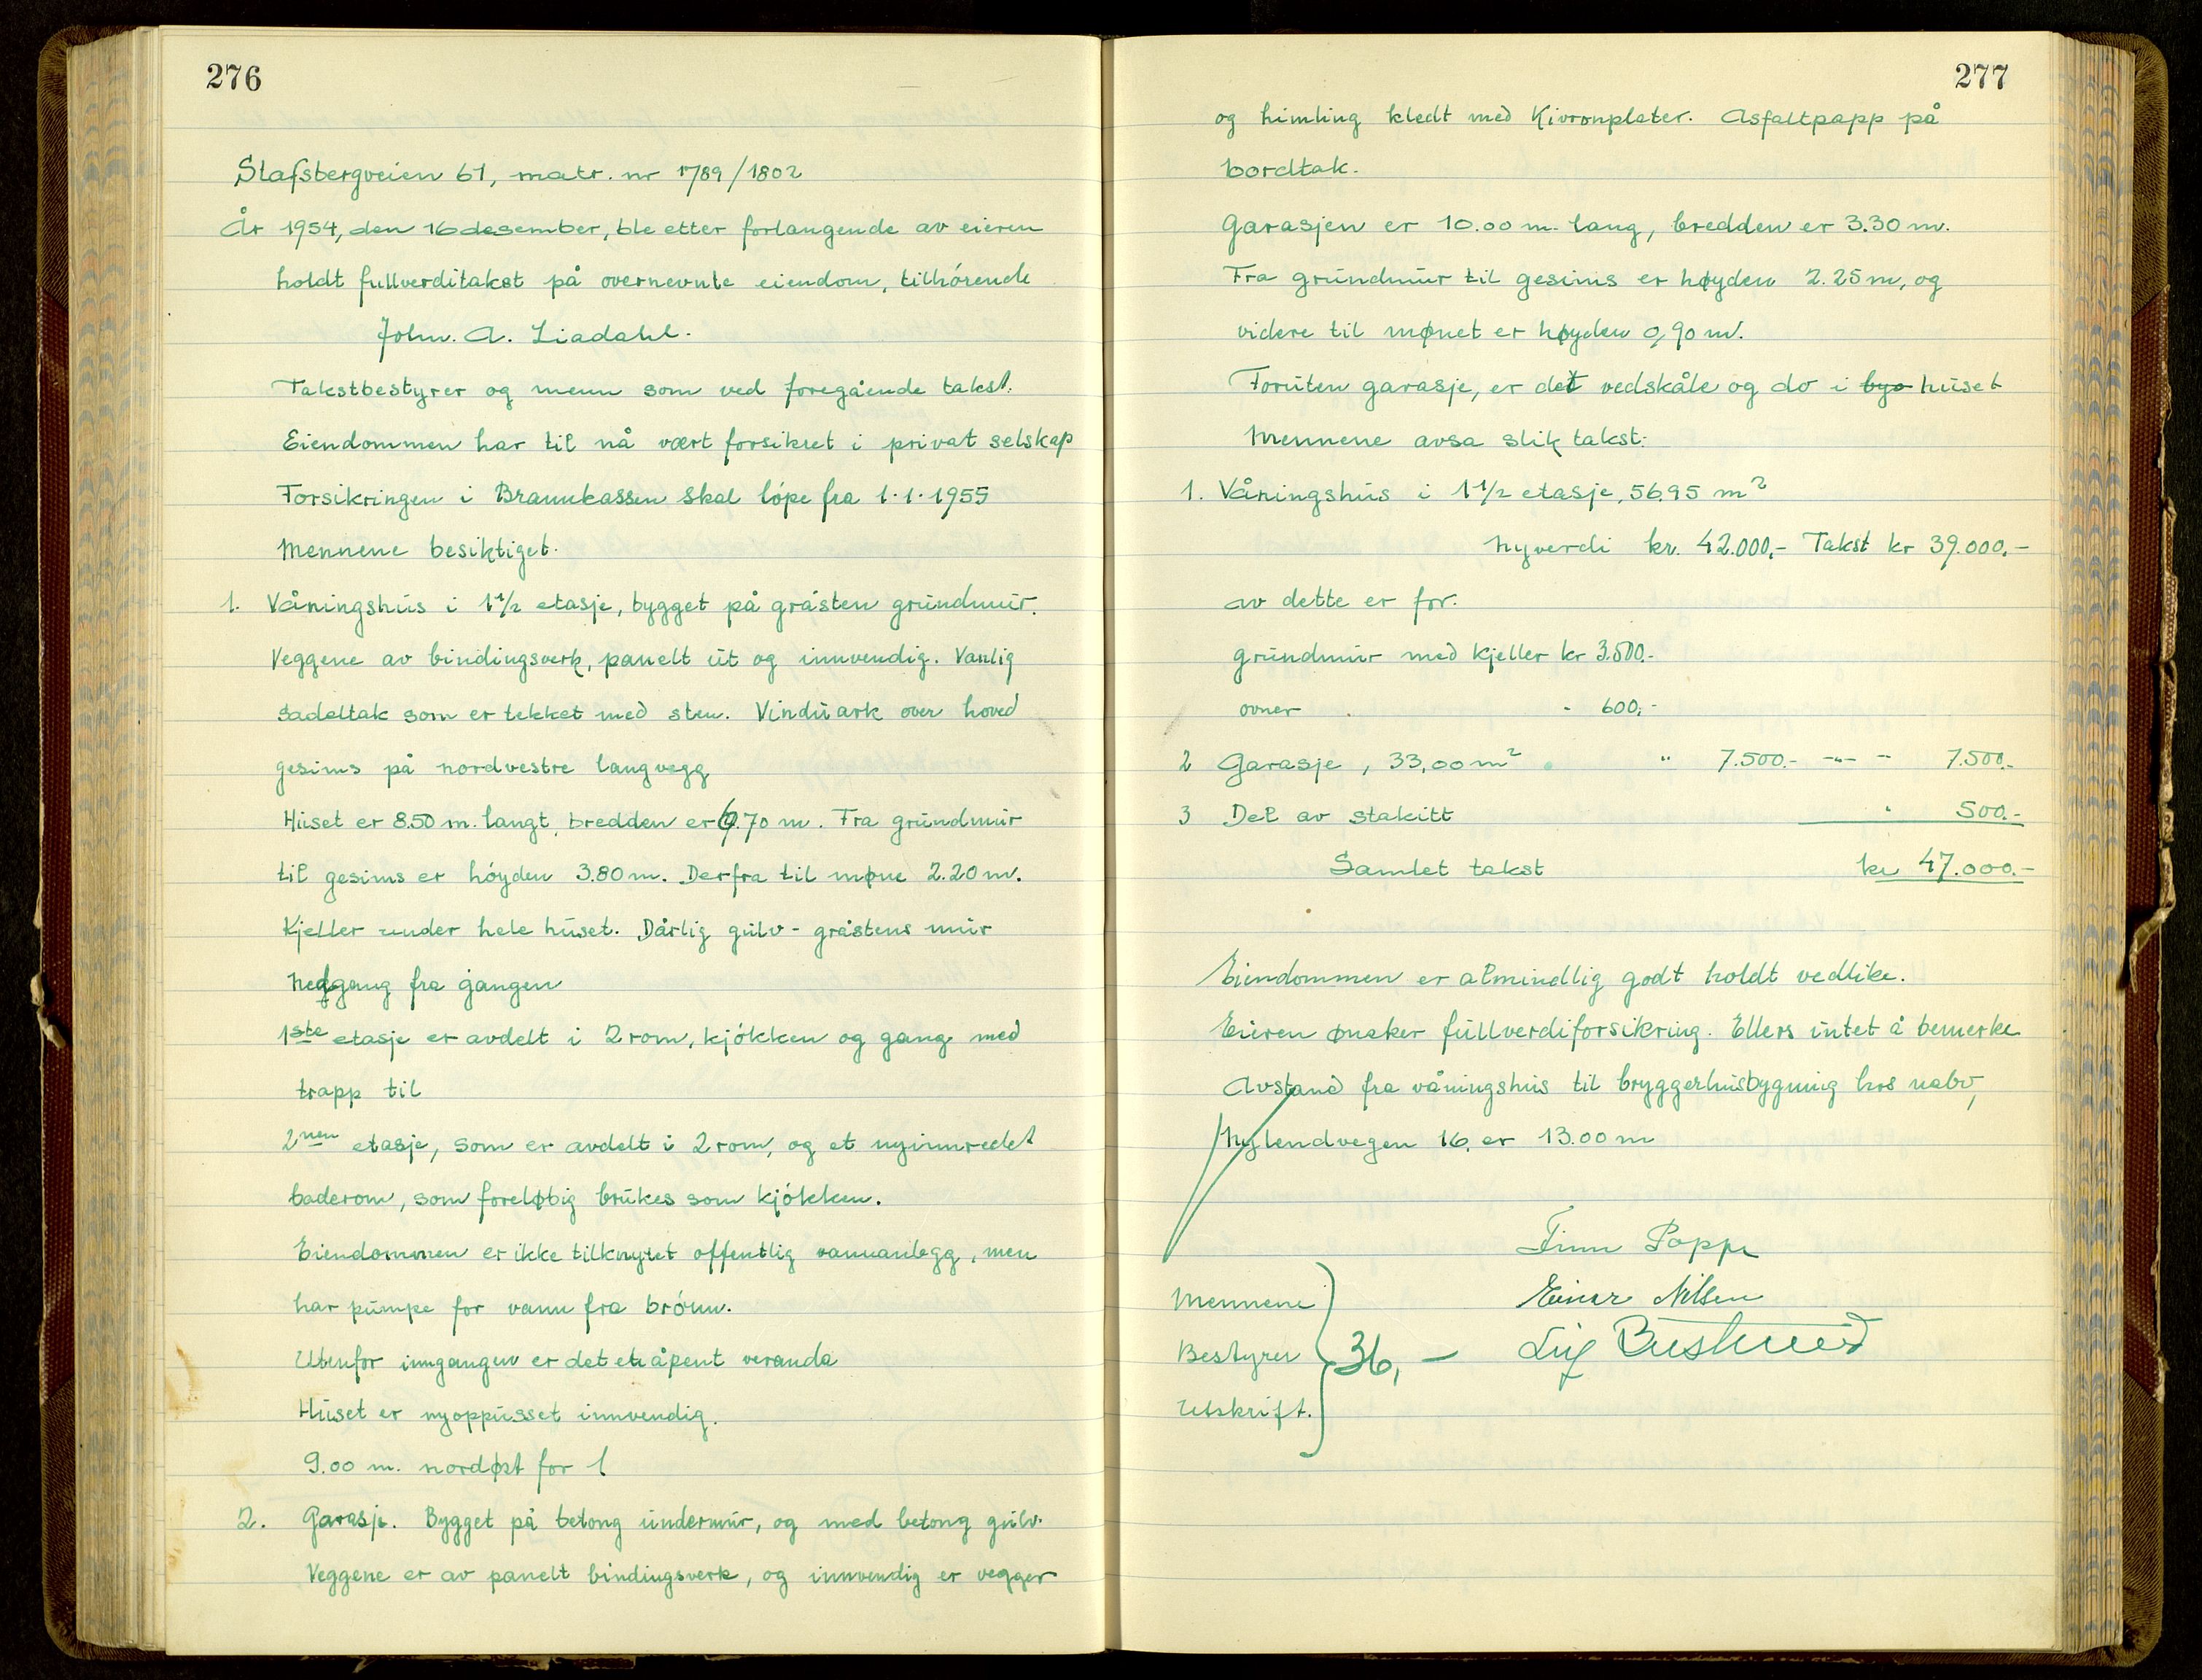 276
Slafsbergveien 61, matr. nr 1789/1802
År 1954, den 16 desember, ble etter forlangende av eieren
holdt fullverditakst på overnevnte eiendom, tilhørende
John. A. Liadahl.
Takstbestyrer og menn som ved foregående takst.
Eiendommen har til nå vært forsikret i privat selskap
Forsikringen i Brannkassen skal løpe fra 1.1.1955
Mennene besiktiget.
1. Våningshus i 1 1/2 etasje, bygget på gråsten grundmur.
Veggene av bindingsverk, panelt ut og innvendig. Vanlig
sadeltak som er tekket med sten. Vinduark over hoved
gesims på nordvestre langvegg
Huset er 8.50 m. langt, bredden er 6.70 m. Fra grundmur
til gesims er høyden 3.80 m. Derfra til møne 2.20 m.
Kjeller under hele huset. Dårlig gulv - gråstens mur
nedgang fra gangen
1ste etasje er avdelt i 2 rom, kjøkken og gang med
trapp til
2nen etasje, som er avdelt i 2 rom, og et nyinnredet
baderom, som foreløbig brukes som kjøkken.
Eiendommen er ikke tilknytet offentlig vannanlegg, men
har pumpe for vann fra brønn.
Utenfor inngangen er det et åpent veranda
Huset er nyoppusset innvendig.
9.00 m. nordøst for 1
2. Garasje. Bygget på betong undermur, og med betong gulv.
Veggene er av panelt bindingsverk, og innvendig er vegger
277
og himling kledt med Kivronplater. Asfaltpapp på
bordtak.
Garasjen er 10.00 m. lang, bredden er 3.30 m.
Fra grundmur til gesims er høyden 2.25 m, og
videre til mønet er høyden 0,90 m.
Foruten garasje, er det vedskåle og do i byo huset
Mennene avsa slik takst:
1. Våningshus i 1 1/2 etasje, 56.95 m²
Nyverdi kr. 42.000,- Takst kr 39.000,-
av dette er for.
grundmur med kjeller kr 3.500.-
ovner - 600,-
2 Garasje, 33,00 m² " 7.500.- -"- - 7.500.-
3 Del av stakitt " 500.-
Samlet takst kr 47.000.-
Eiendommen er almindlig godt holdt vedlike.
Eieren ønsker fullverdiforsikring. Ellers intet å bemerke
Avstand fra våningshus til bryggerhusbygning hos nabo,
Nylendvegen 16, er 13.00 m
Finn Poppe
Einar Nilsen
Mennene
Bestyrer 36,-
Utskrift.